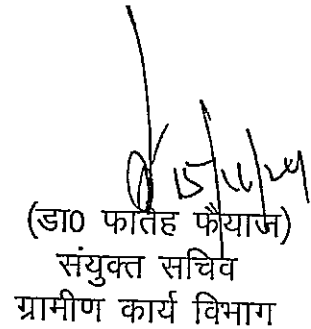 15/11/24
(डा0 फातेह फैयाज)
संयुक्त सचिव
ग्रामीण कार्य विभाग